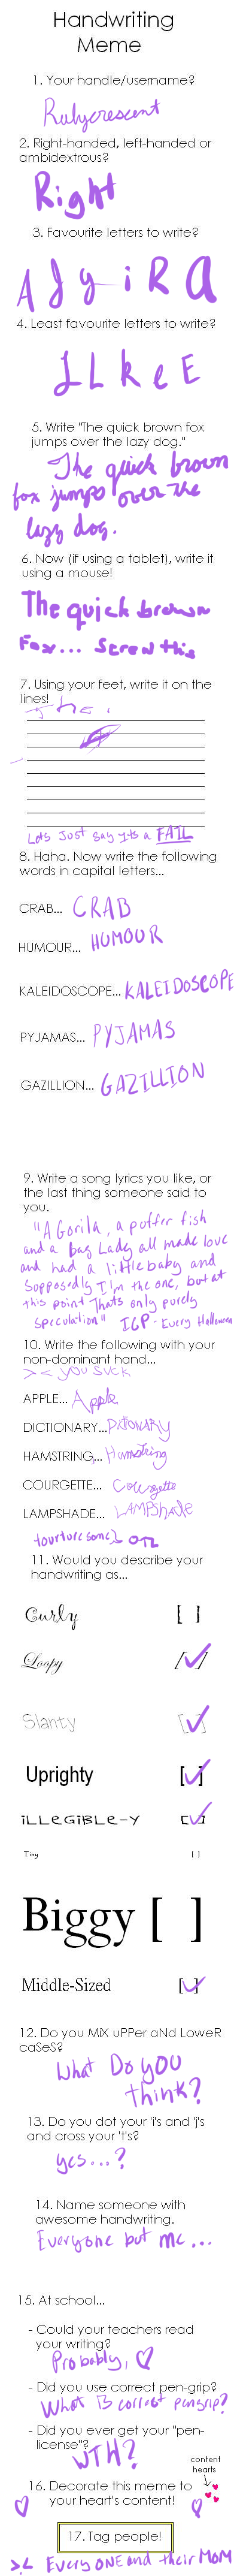 Handwriting
Meme
1. Your handle/username?
Rubycrescent
2. Right-handed, left-handed or
ambidextrous?
Right
3. Favourite letters to write?
A J y i R a
4. Least favourite letters to write?
I L k e E
5. Write "The quick brown fox
jumps over the lazy dog."
The quick brown
fox jumps over the
lazy dog.
6. Now (if using a tablet), write it
using a mouse!
The quick brown
Fox... Screw this
7. Using your feet, write it on the
lines!
The
Lets Just say its a FAIL
8. Haha. Now write the following
words in capital letters...
CRAB... CRAB
HUMOUR... HUMOUR
KALEIDOSCOPE... KALEIDOSCOPE
PYJAMAS... PYJAMAS
GAZILLION... GAZILLION
9. Write a song lyrics you like, or
the last thing someone said to
you.
"A Gorila, a puffer fish
and a bag Lady all made love
and had a little baby and
Supposedly I'm the one, but at
this point thats only purely
speculation" ICP - Every Halloween
10. Write the following with your
non-dominant hand...
>< you suck
APPLE... Apple
DICTIONARY... DictIONARy
HAMSTRING... Hamstring
COURGETTE... Courgette
LAMPSHADE... LAMPShade
OTL
11. Would you describe your
handwriting as...
Curly [ ]
Loopy [✓]
Slanty [✓]
Uprighty [✓]
iLLeGiBLe-Y [✓]
Tiny [ ]
Biggy [ ]
Middle-Sized [✓]
12. Do you MiX uPPer aNd LoweR
caSeS?
What Do you
think?
13. Do you dot your 'i's and 'j's
and cross your 't's?
yes...?
14. Name someone with
awesome handwriting.
Everyone but me...
15. At school...
- Could your teachers read
your writing?
Probably, ♡
- Did you use correct pen-grip?
What IS correct pengrip?
- Did you ever get your "pen-
license"?
WTH?
content
hearts
16. Decorate this meme to
your heart's content!
17. Tag people!
>.< Every ONE and their MOM